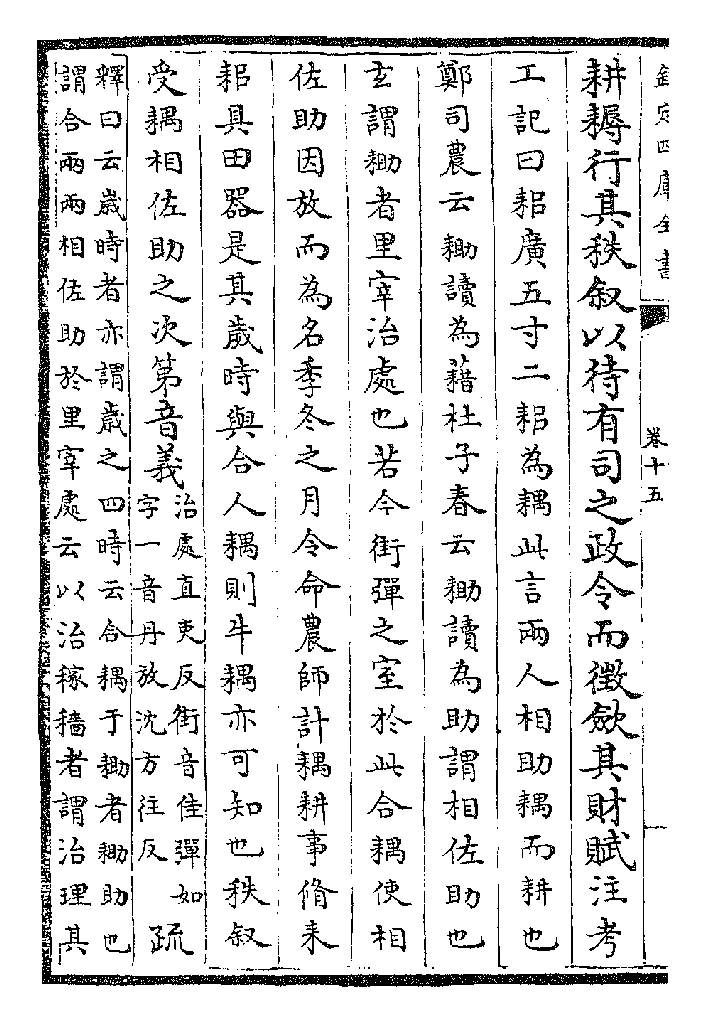 欽定四庫全書
卷十五
耕耨行其秩叙以待有司之政令而徴斂其財賦注考
工記曰耜廣五寸二耜為耦此言兩人相助耦而耕也
鄭司農云耡讀為藉杜子春云耡讀為助謂相佐助也
玄謂耡者里宰治處也若今街彈之室於此合耦使相
佐助因放而為名季冬之月令命農師計耦耕事脩耒
耜具田器是其歲時與合人耦則牛耦亦可知也秩叙
受耦相佐助之次第音義
治處直吏反街音佳彈如
字一音丹放沈方往反
疏
釋曰云歲時者亦謂歲之四時云合耦于耡者耡助也
謂合兩兩相佐助於里宰處云以治稼穡者謂治理其